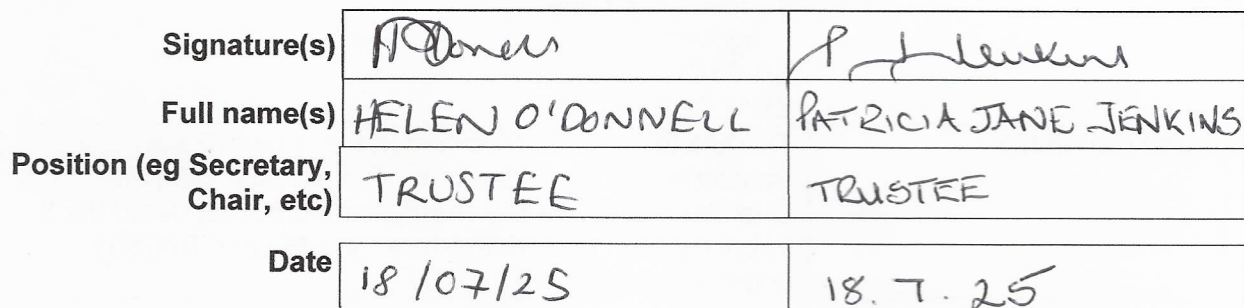 Signature(s) P J Jenkins
Full name(s) HELEN O'DONNELL PATRICIA JANE JENKINS
Position (eg Secretary,
Chair, etc) TRUSTEE TRUSTEE
Date 18/07/25 18.7.25